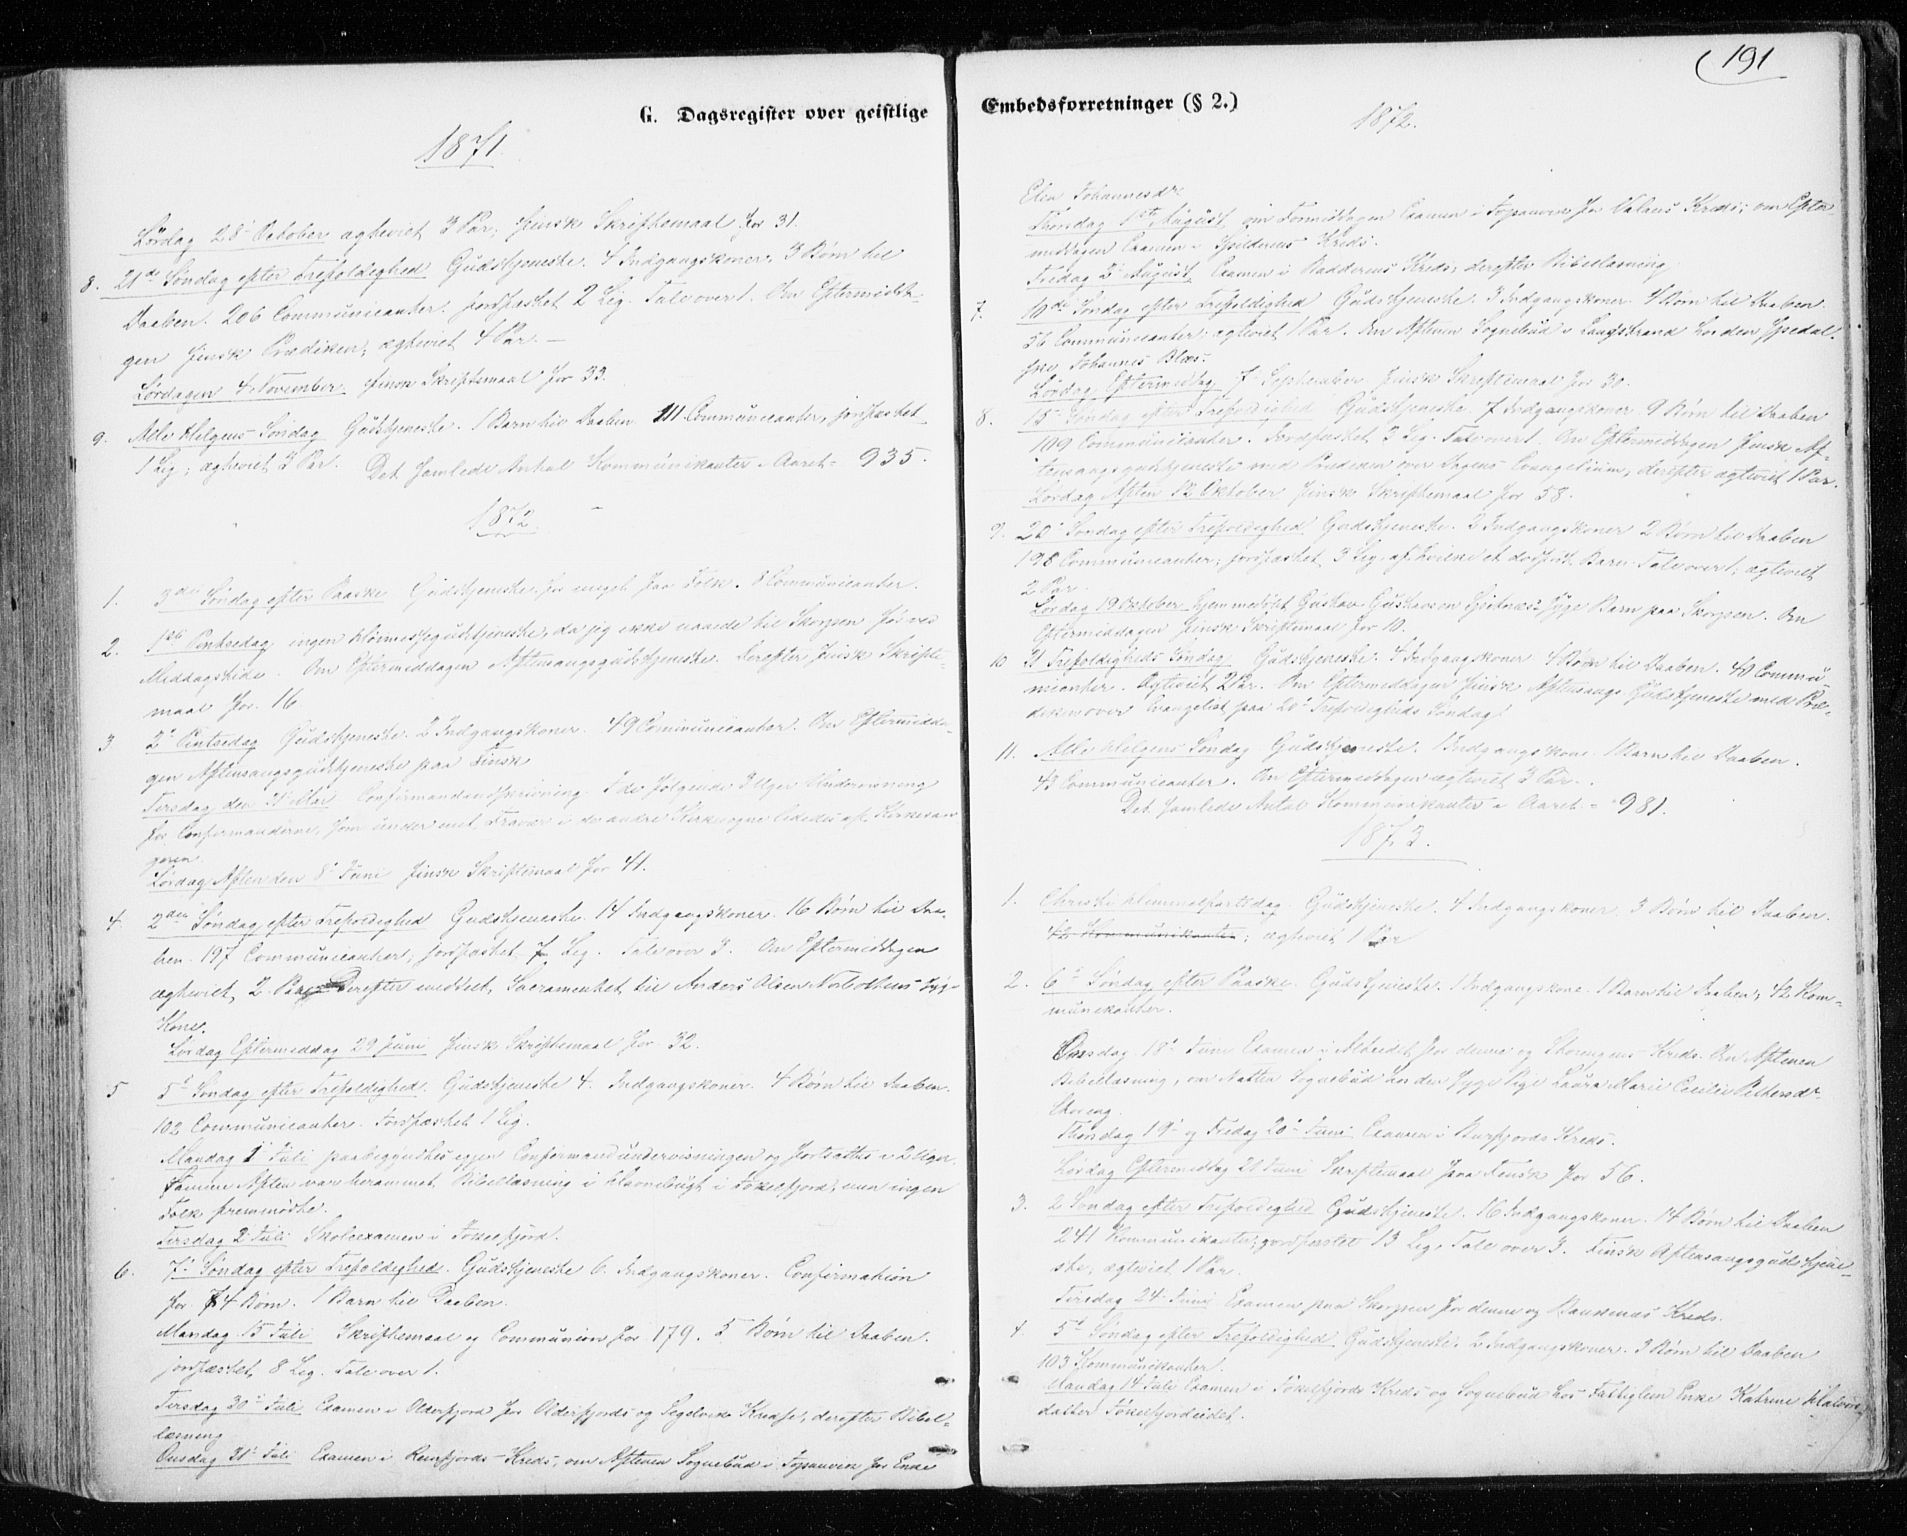 G. Dagsregister over geistlige
1871.
Lördag 28 October ægteviet 3 Par, finsk Skriftemaal for 31.
8. 21de Söndag efter Trefoldighed Gudstjeneste. 4 Indgangskoner. 3 Børn til
Daaben. 206 Communicanter. jordfæstet 2 Lig. Tale over 1. Om Eftermidda-
gen finsk Prædiken, ægteviet 4 Par.
Lördagen 4 November. finsk Skriftemaal for 33.
9. Alle Helgens Søndag Gudstjeneste. 1 Barn til Daaben 111 Communicanter, jordfæstet
1 Lig; ægteviet 3 Par. Det samlede Antal Kommunikanter i Aaret = 935.
1872.
1. 3die Søndag efter Paaske Gudstjeneste for meget faa Folk. 8 Communicanter.
2. 1ste Pintsedag ingen Høimessegudstjeneste, da jeg ikke naaede til Skorpen før ved
Middagstider. Om Eftermiddagen Aftensangsgudstjeneste. Derefter finsk Skrifte-
maal for 16
3 2' Pintsedag Gudstjeneste. 2 Indgangskoner. 49 Communicanter. Om Eftermidda-
gen Aftensangsgudstjeneste paa Finsk
Tirsdag den 21 Mai. Confirmandindskrivning. I de følgende 3 Uger Underviisning
for Confirmanderne, som under mit Fravær i de andre Kirkesogne lededes af Kirkesan-
geren.
Lørdag Aften den 8' Juni finsk Skriftemaal for 41.
4 2den Søndag efter Trefoldighed Gudstjeneste. 14 Indgangskoner. 16 Børn til Daa-
ben. 197 Communicanter, jordfæstet 7 Lig. Tale over 3. Om Eftermiddagen
ægteviet 2 Par. Derefter meddelt Sacramentet til Anders Olsen syg-
Kone.
Lørdag Eftermiddag 29 Juni finsk Skriftemaal for 32.
5 5' Søndag efter Trefoldighed. Gudstjeneste 4. Indgangskoner. 4 Børn til Daaben.
102 Communicanter. Jordfæstet 1 Lig.
Mandag 1 Juli paabegyndtes igjen Confirmandundervisningen og fortsattes i 2 Uger.
Samme Aften var berammet Bibellæsning i Havnebugt i Jøkelfjord, men ingen
Folk fremmødte.
Tirsdag 2' Juli Skoleexamen i Jøkelfjord.
6. 7' Søndag efter Trefoldighed. Gudstjeneste 6. Indgangskoner. Confirmation
for 74 Børn. 1 Barn til Daaben.
Mandag 15 Juli Skriftemaal og Communion for 179. 5 Børn til Daaben.
jordfæstet 8 Lig. Tale over 1.
Tirsdag 30' Juli Examen i Olderfjord for Olderfjords og Segelvik Kredse, derefter Bibel-
læsning
Onsdag 31' Juli Examen i Reinfjords-Kreds, om Aftenen Sognebud i for Enke
191
Embedsforretninger (§ 2.)
1872.
Elen Johannesdr
Thorsdag 1ste August om Formiddagen Examen i for Valans Kreds; om Efter
middagen Examen i Kreds.
Fredag 2' August Examen i Badderens Kreds, derefter Bibellæsning
7. 10de Søndag efter Trefoldighed Gudstjeneste. 3 Indgangskoner 4 Børn til Daaben.
56 Communicanter, ægteviet 1 Par. Om Aftenen Sognebud i Langstrand hos den
syge Johannes
Lørdag Eftermiddag 7' September finsk Skriftemaal for 30.
8. 15' Søndag efter Trefoldighed Gudstjeneste. 7 Indgangskoner 9 Børn til Daaben
109 Communicanter. Jordfæstet 3 Lig. Tale over 1. Om Eftermiddagen finsk Af-
tensangsgudstjeneste med Prædiken over Dagens Evangelium, derefter ægteviet 1 Par.
Lørdag Aften 12 Oktober finsk Skriftemaal for 58.
9. 20' Søndag efter Trefoldighed Gudstjeneste. 2 Indgangskoner 2 Børn til Daaben
198 Communicanter; jordfæstet 3 Lig, af hvilke et dødfødt Barn Tale over 1, ægteviet
2 Par.
Lørdag 19 Oktober hjemmedøbt Gustav Gustavsen syge Barn paa Skorpen. Om
Eftermiddagen finsk Skriftemaal for 10.
10 21 Trefoldigheds Søndag Gudstjeneste. 4 Indgangskoner 4 Børn til Daaben. 40 Commu-
nicanter. Ægteviet 2 Par. Om Eftermiddagen finsk Aftensangs Gudstjeneste med Præ-
diken over Evangeliet paa 20' Trefoldigheds Søndag.
11. Alle Helgens Søndag Gudstjeneste. 1 Indgangskone. 1 Barn til Daaben.
43 Communicanter. Om Eftermiddagen ægteviet 3 Par.
Det samlede Antal Kommunikanter i Aaret = 981.
1873.
1. Christi Himmelfartsdag. Gudstjeneste. 4 Indgangskoner. 3 Børn til Daaben.
42 Kommunikanter; ægteviet 1 Par
2. 6' Søndag efter Paaske. Gudstjeneste. 1 Indgangskone. 1 Barn til Daaben, 42 Kom-
munikanter.
Onsdag 18' Juni Examen i Alteidet for denne og Storengens Kreds. Om Aftenen
Bibellæsning, om Natten Sognebud hos den syge Pige Laura Marie Cecilie Pettersdr
Storeng.
Thorsdag 19' og Fredag 20' Juni Examen i Burfjords Kreds.
Lørdag Eftermiddag 21 Juni Skriftemaal paa Finsk for 56.
3. 2 Søndag efter Trefoldighed Gudstjeneste. 16 Indgangskoner. 14 Børn til Daaben
241 Kommunikanter, jordfæstet 13 Lig, Tale over 3. Finsk Aftensangsgudstjene-
ste; ægteviet 1 Par.
Tirsdag 24 Juni Examen paa Skorpen for denne og Kreds.
4. 5' Søndag efter Trefoldighed Gudstjeneste. 2 Indgangskoner. 3 Børn til Daaben
103 Kommunikanter.
Mandag 14 Juli Examen i Jøkelfjords Kreds og Sognebud hos Fattiglem Enke Katrine Halvors
datter Jøkelfjordeidet.